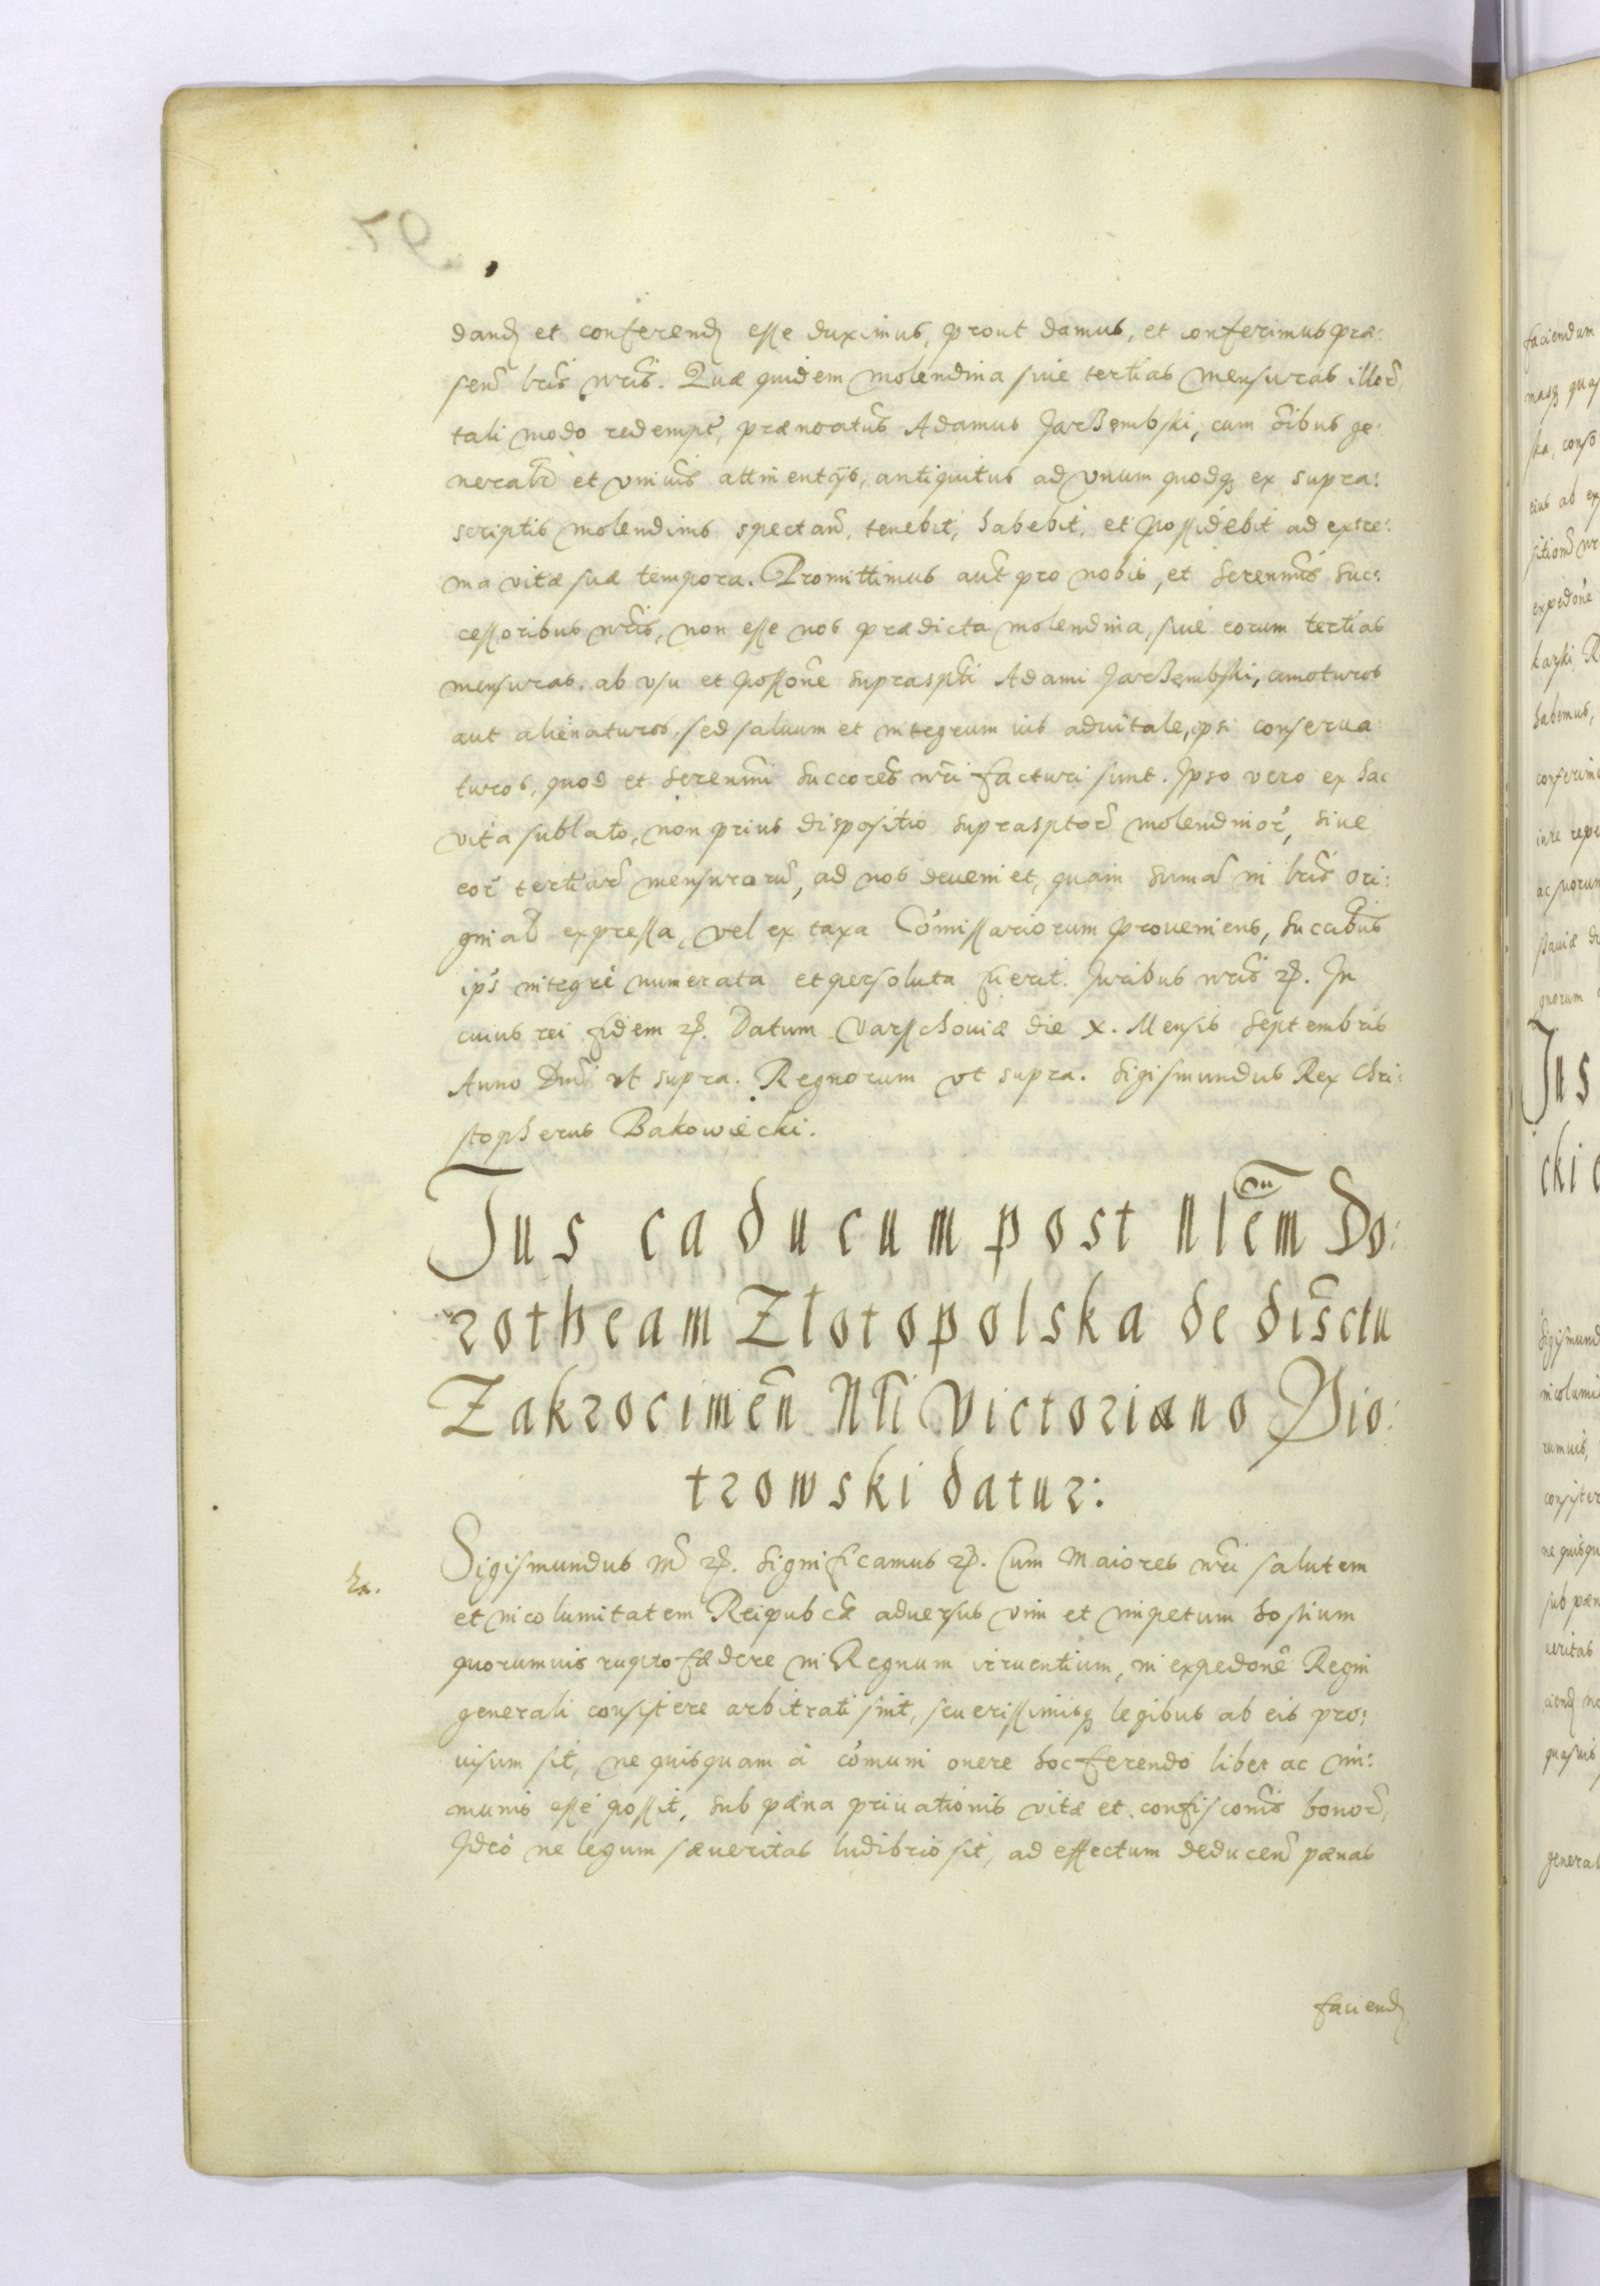 dand et conferend esse duximus, prout damus, et conferimus præ:
sen̄ lr̄is nr̄is. Quæ quidem molendina siue tertias mensuras illor̄,
tali modo redempt̄, prænoatus Adamus JarBembski, cum oībus ge:
neralib et vniuīs attinentijs, antiquitus ad vnum quodq ex supra:
scriptis molendinis spectan̄, tenebit, habebit, et possidebit ad extre:
ma vitæ suæ tempora. Promittimus aut̄ pro nobis, et Serenmīs Suc:
cessoribus nr̄is, non esse nos prædicta molendina, siue eorum tertias
mensuras. ab vsu et possone suprasp̄ti Adami JarBembski, amoturos
aut alienaturos, sed saluum et integrum ius aduitale, ipsi conserua:
turos, quod et Serenmī Succores nr̄i facturi sunt. Ipso vero ex hac
vita sublato, non prius dispositio suprasptor̄ molendinor̄, siue
eor̄ tertiar̄ mensurarū, ad nos deueniet, quam suma in lr̄is ori:
ginalib expressa, vel ex taxa Comissariorum proueniens, succībus
ips̄ integre numerata et persoluta fuerit. Juribus nr̄is etc. In
cuius rei fidem etc. Datum Varsschouiæ die X. Mensis Septembris
Anno Dnī vt supra. Regnorum vt supra. Sigismundus Rex Chri:
stopherus Bakowiecki.
Jus caducum post Nlēm Do:
rotheam Zlotopolska de disctu
Zakrocimen̄ Nlī Victoriano Pio:
trowski datur:
Sigismundus etc. Significamus etc. Cum Maiores nr̄i salutem
et incolumitatem Reipubcæ aduersus vim et impetum hostium
quorumuis rupto fædere in Regnum irruentium, in expedōne Regni
generali consistere arbitrati sint, seuerissimisq legibus ab eis pro:
uisum sit, ne quisquam à comuni onere hoc ferendo liber ac im:
munis esse possit, sub pæna priuationis vitæ et confiscon̄is bonor̄,
Ideo ne legum sæueritas ludibrio sit, ad effectum deducen̄ pænas
faciend